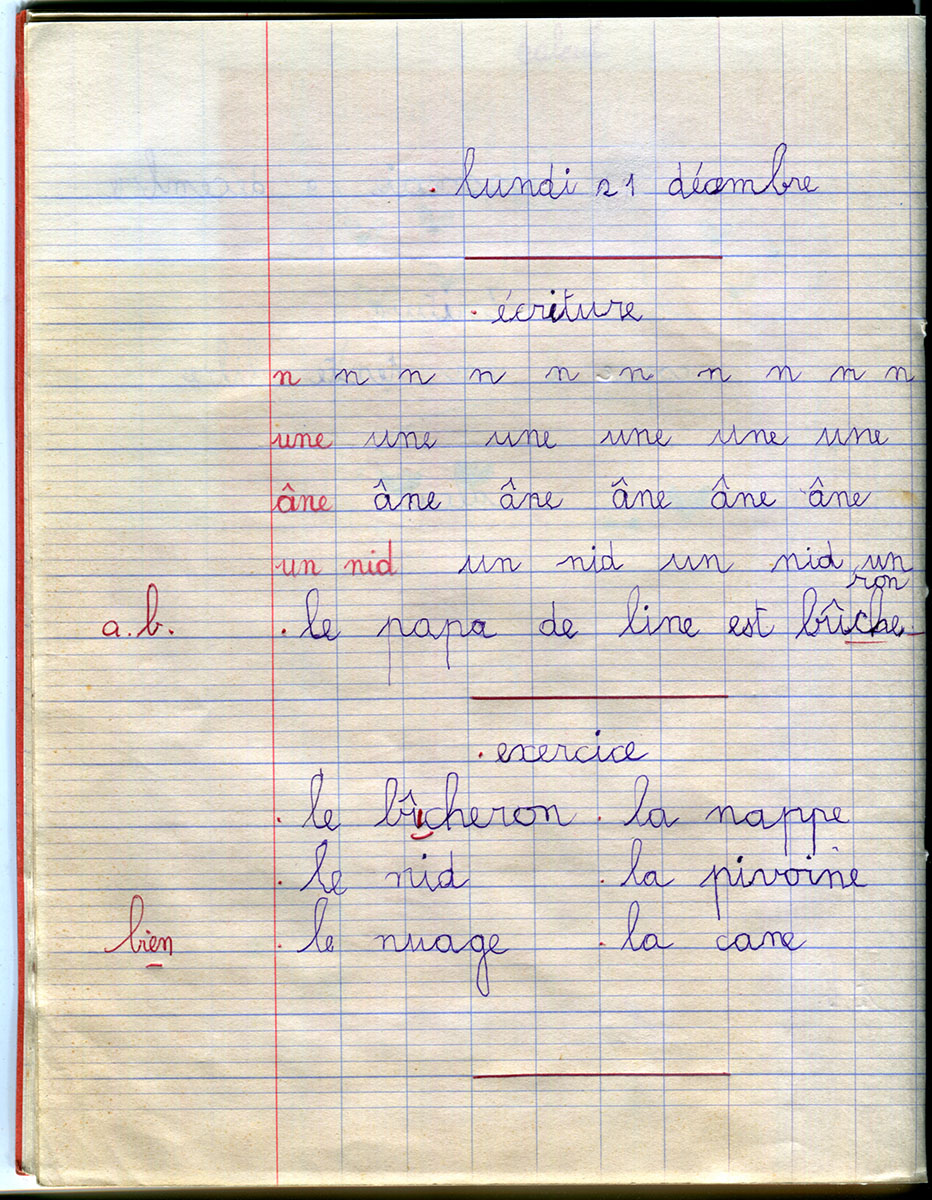 lundi 21 décembre
écriture
n n n n n n n n n n
une une une une une une
âne âne âne âne âne âne
un nid un nid un nid un
a.b. le papa de line est bûcheron
exercice
le bûcheron la nappe
le nid la pivoine
bien le nuage la cane